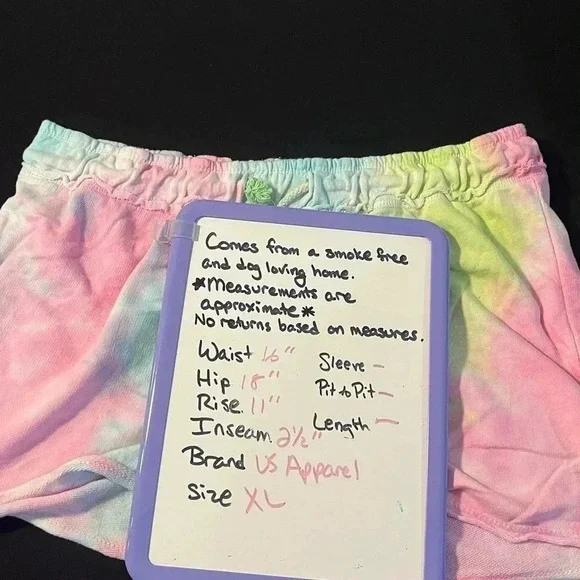 Comes from a smoke free
and dog loving home.
*Measurements are
approximate*
No returns based on measures.
Waist 16"
Hip 18"
Rise 11"
Inseam 2½"
Brand US Apparel
Size XL
Sleeve -
Pit to Pit -
Length -